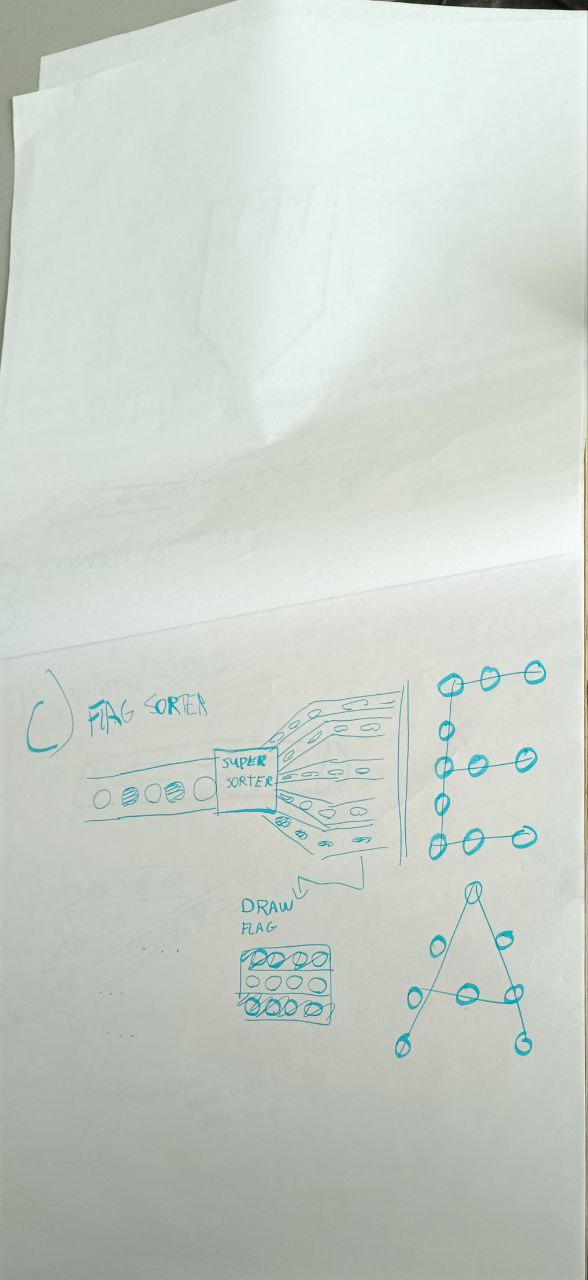 C) FLAG SORTER
SUPER
SORTER
DRAW
FLAG
E
A